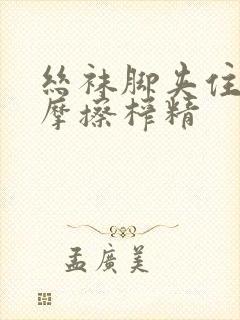 絲袜脚夹住
摩擦榨精
孟廣美